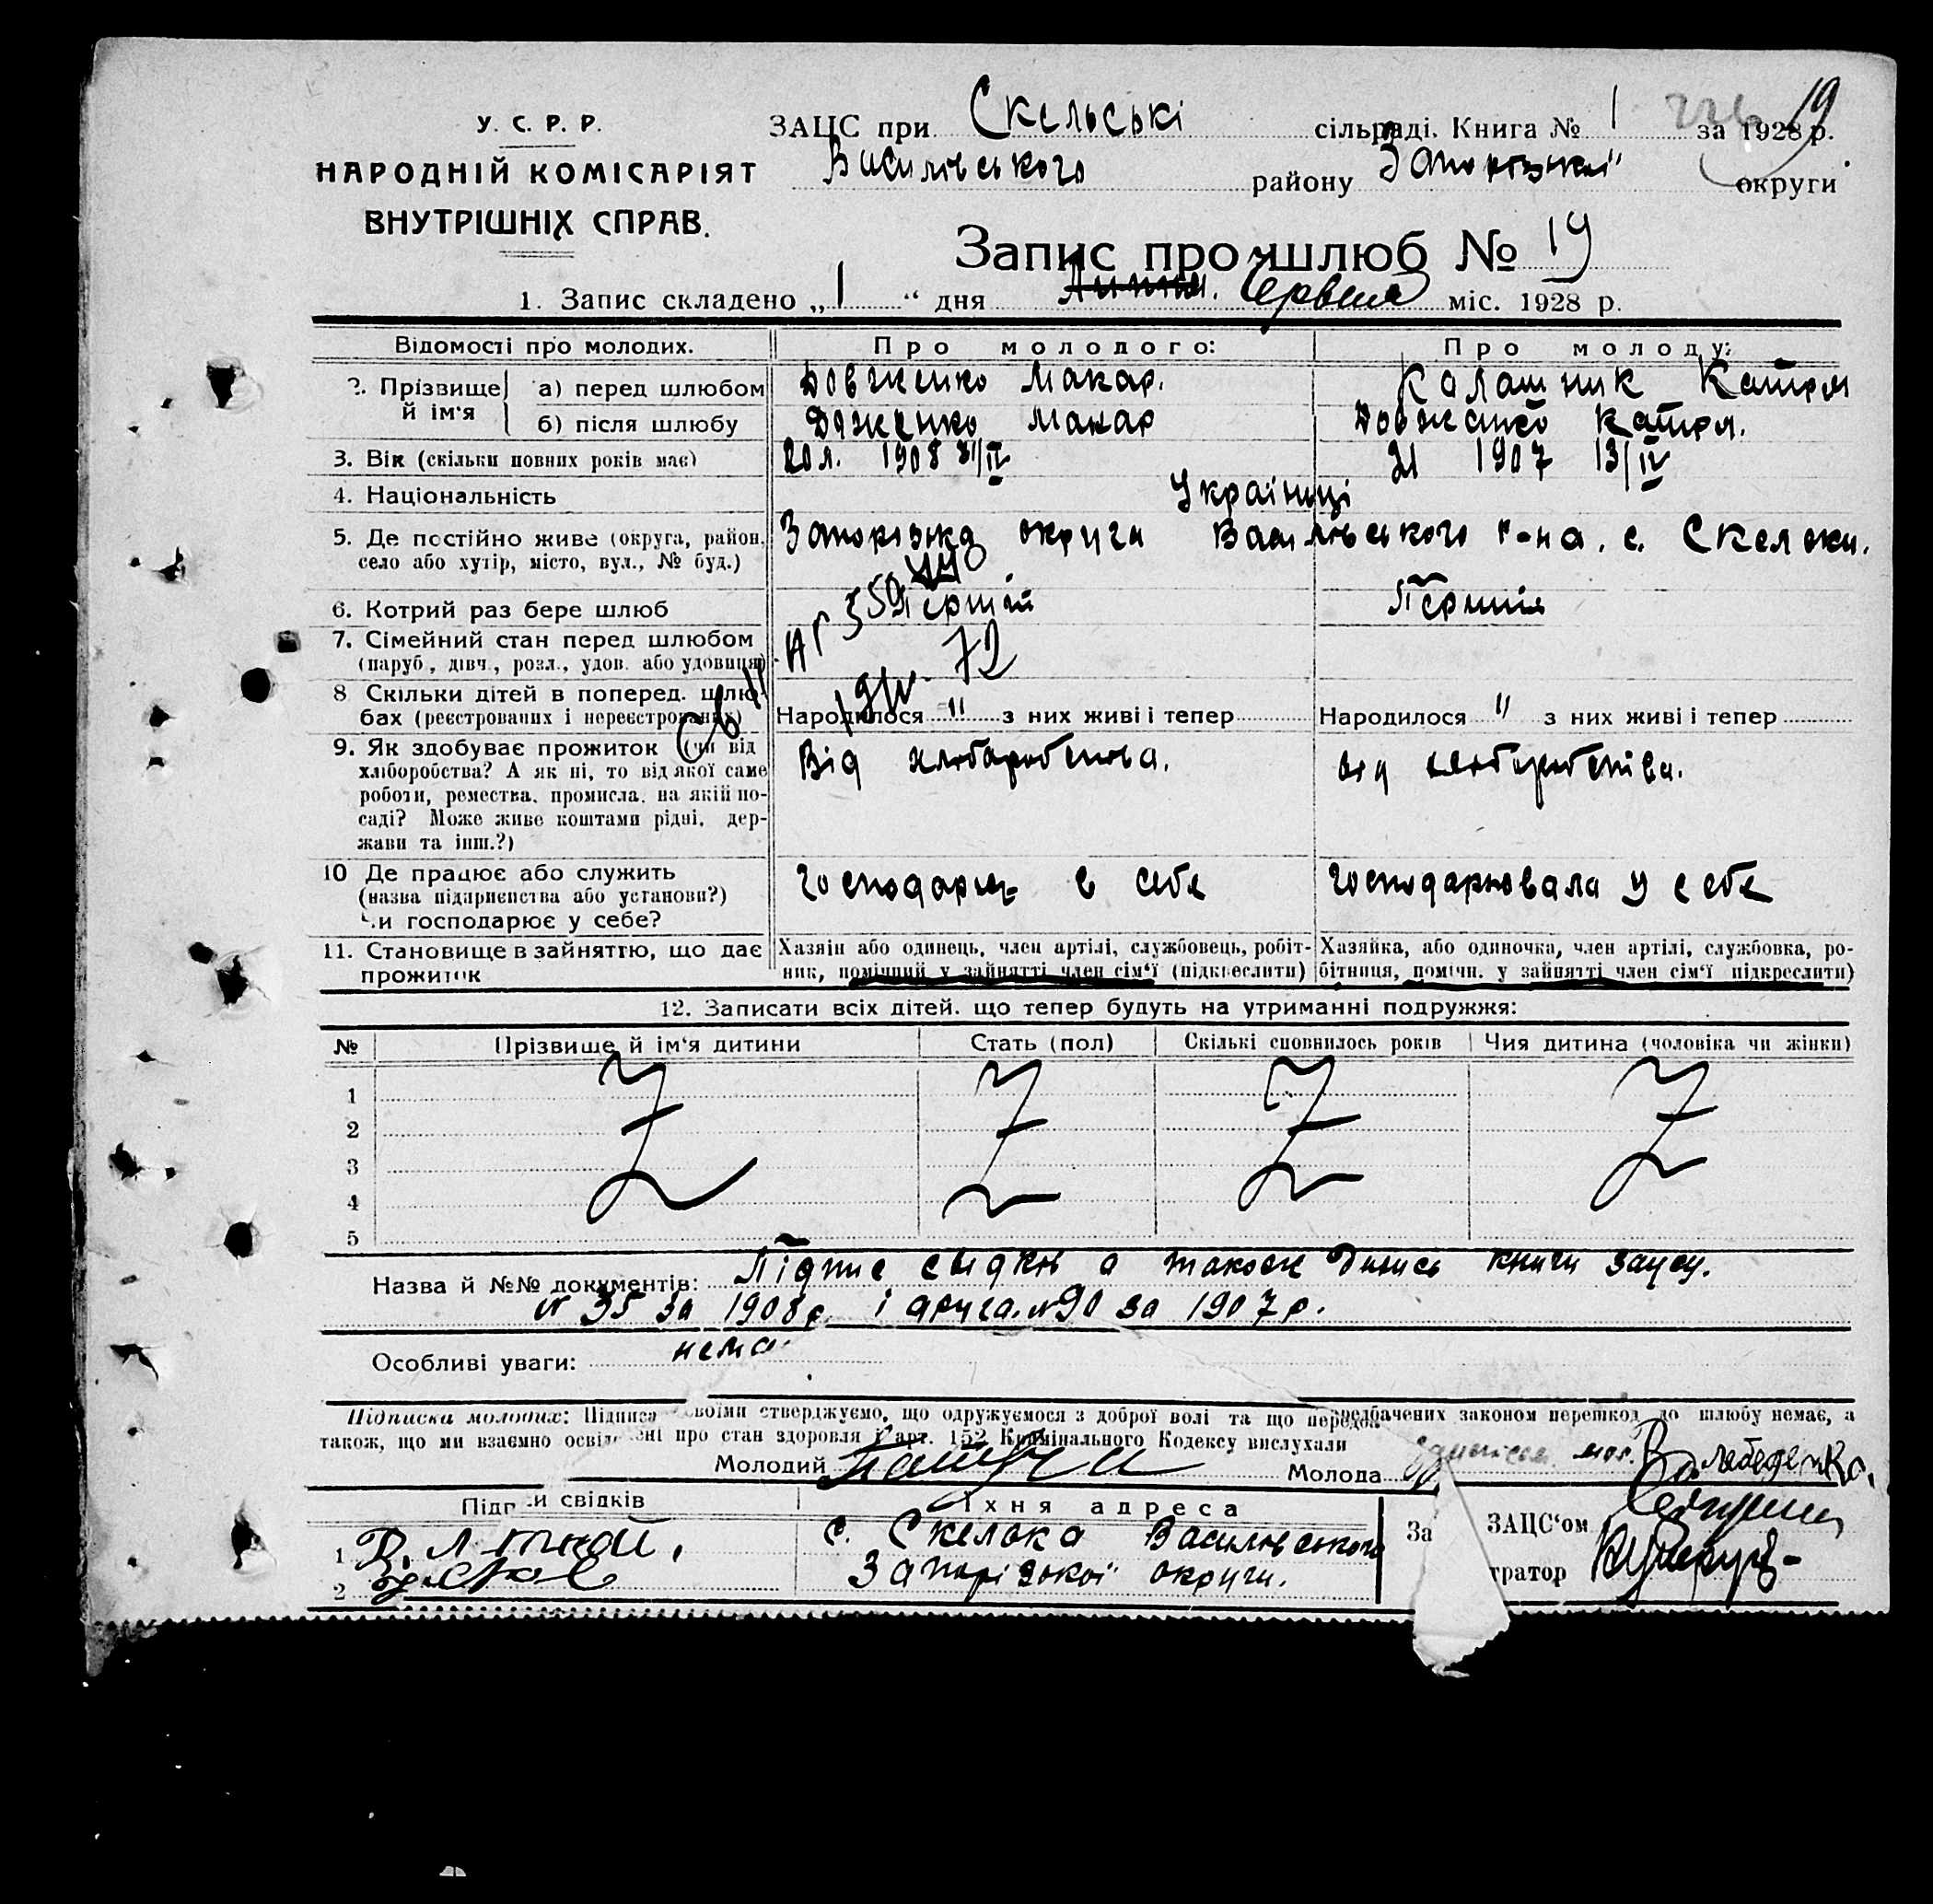 У. С. Р. Р.
НАРОДНІЙ КОМІСАРІЯТ
ВНУТРІШНІХ СПРАВ.
ЗАЦС при Скельські сільраді. Книга № 1 за 1928 р. 19
Василівського району Запорізької округи
Запис про шлюб № 19
1. Запис складено „1“ дня Липня. Червня міс. 1928 р.
Відомості про молодих. Про молодого: Про молоду:
2. Прізвище й ім‘я а) перед шлюбом Довженко Макар. Калашник Катря
б) після шлюбу Довженко Макар Довженко Катря.
3. Вік (скільки повних років має) 20 л. 1908 IV 21 1907 13/IV
4. Національність Українці
5. Де постійно живе (округа, район, село або хутір, місто, вул., № буд.) Запорізька округи Василівського р-на. с. Скельки.
6. Котрий раз бере шлюб Перший Перший
7. Сімейний стан перед шлюбом (паруб., дівч., розл., удов. або удовиця) 72
8 Скільки дітей в поперед. шлюбах (реєстрованих і нереєстрованих) Народилося " з них живі і тепер Народилося " з них живі і тепер
9. Як здобуває прожиток (чи від хліборобства? А як ні, то від якої саме роботи, ремества, промисла, на якій посаді? Може живе коштами рідні, держави та інш.?) Від хліборобства. від хліборобства.
10 Де працює або служить (назва підприєнства або установи?) Чи господарює у себе? господарює в себе господарювала у себе
11. Становище в зайняттю, що дає прожиток Хазяін або одинець, член артілі, службовець, робітник, помічний у зайнятті член сім‘ї (підкреслити) Хазяйка, або одиночка, член артілі, службовка, робітниця, помічн. у зайнятті член сім‘ї підкреслити)
12. Записати всіх дітей, що тепер будуть на утриманні подружжя:
№ Прізвище й ім‘я дитини Стать (пол) Скількі сповнилось років Чия дитина (чоловіка чи жінки)
1
2
3
4
5
Назва й №№ документів: Підпис свідків а також книги зацсу.
№ 35 за 1908 р. і друга. №90 за 1907 р.
Особливі уваги: нема
Підписка молодих: Підписа своїми стверджуємо, що одружуємося з доброї волі та що передбачених законом перешкод до шлюбу немає, а
також, що ми взаємно освід ені про стан здоровля і арт. 152 Кримінального Кодексу вислухали
Молодий Молода
Підп и свідків Їхня адреса За ЗАЦС‘ом
1 с. Скелька Василівського
2 Запорізької округи. тратор